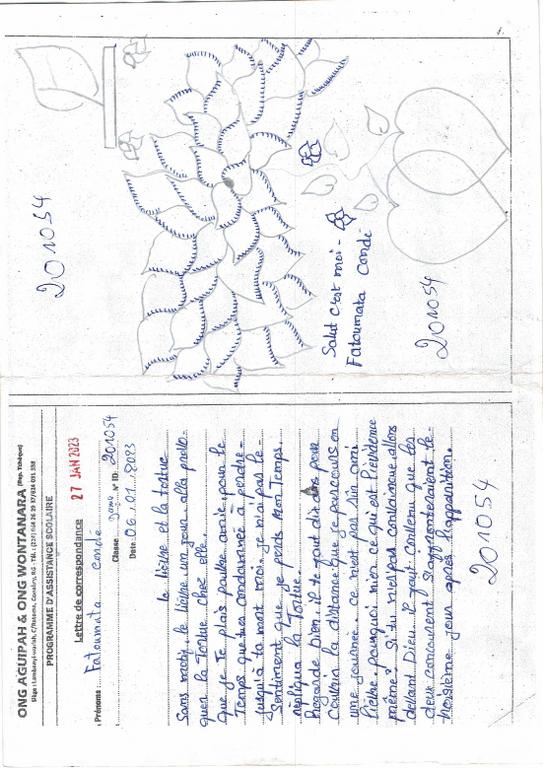 ONG AGUIPAH & ONG WONTANARA (Rép. Tchèque)
PROGRAMME D'ASSISTANCE SCOLAIRE
Lettre de correspondance
27 JAN 2023
Prénoms : Fatoumata conde
Classe N° ID: 201054
Date : 06.01.2023
le lièvre et la tortue
Sans motif, le lièvre un jour, alla provo-
quer la Tortue chez elle.
Que je Te plais pauvre amie, pour le
Temps que tu es condamnée à perdre
jusqu'à ta mort moi, je n'ai pas le
Sentiment que je perds mon Temps.
répliqua la Tortue.
Regarde bien. il te faut dix ans pour
Couvrir la distance que je parcours en
une journée. ce n'est pas sûr ami
lièvre. pourquoi nier ce qui est l'évidence
même? Si tu n'es pas convaincue, allons
devant Dieu. il faut convenu que les
deux concurrents s'affronteraient le
troisième jour après l'apparution.
201054
201054
Salut c'est moi -
Fatoumata Condé
201054
1.